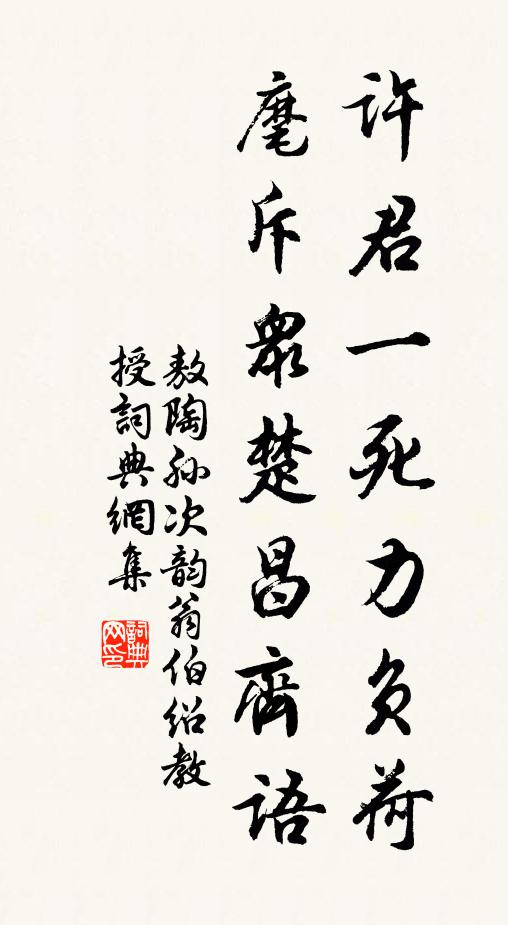 許君一死力负荷
麾斥眾楚昌齊語
敖陶孙次韵翁伯绍教
授詞典網集
詞典网印